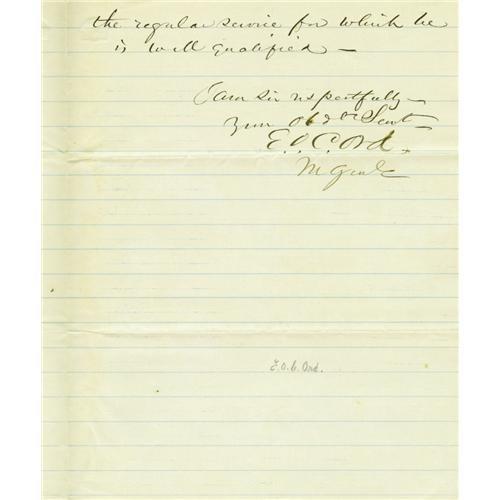 the regular service for which he
is well qualified —
I am sir respectfully
your obdt Servt
E O C Ord.
M Genl
E.O.C. Ord.